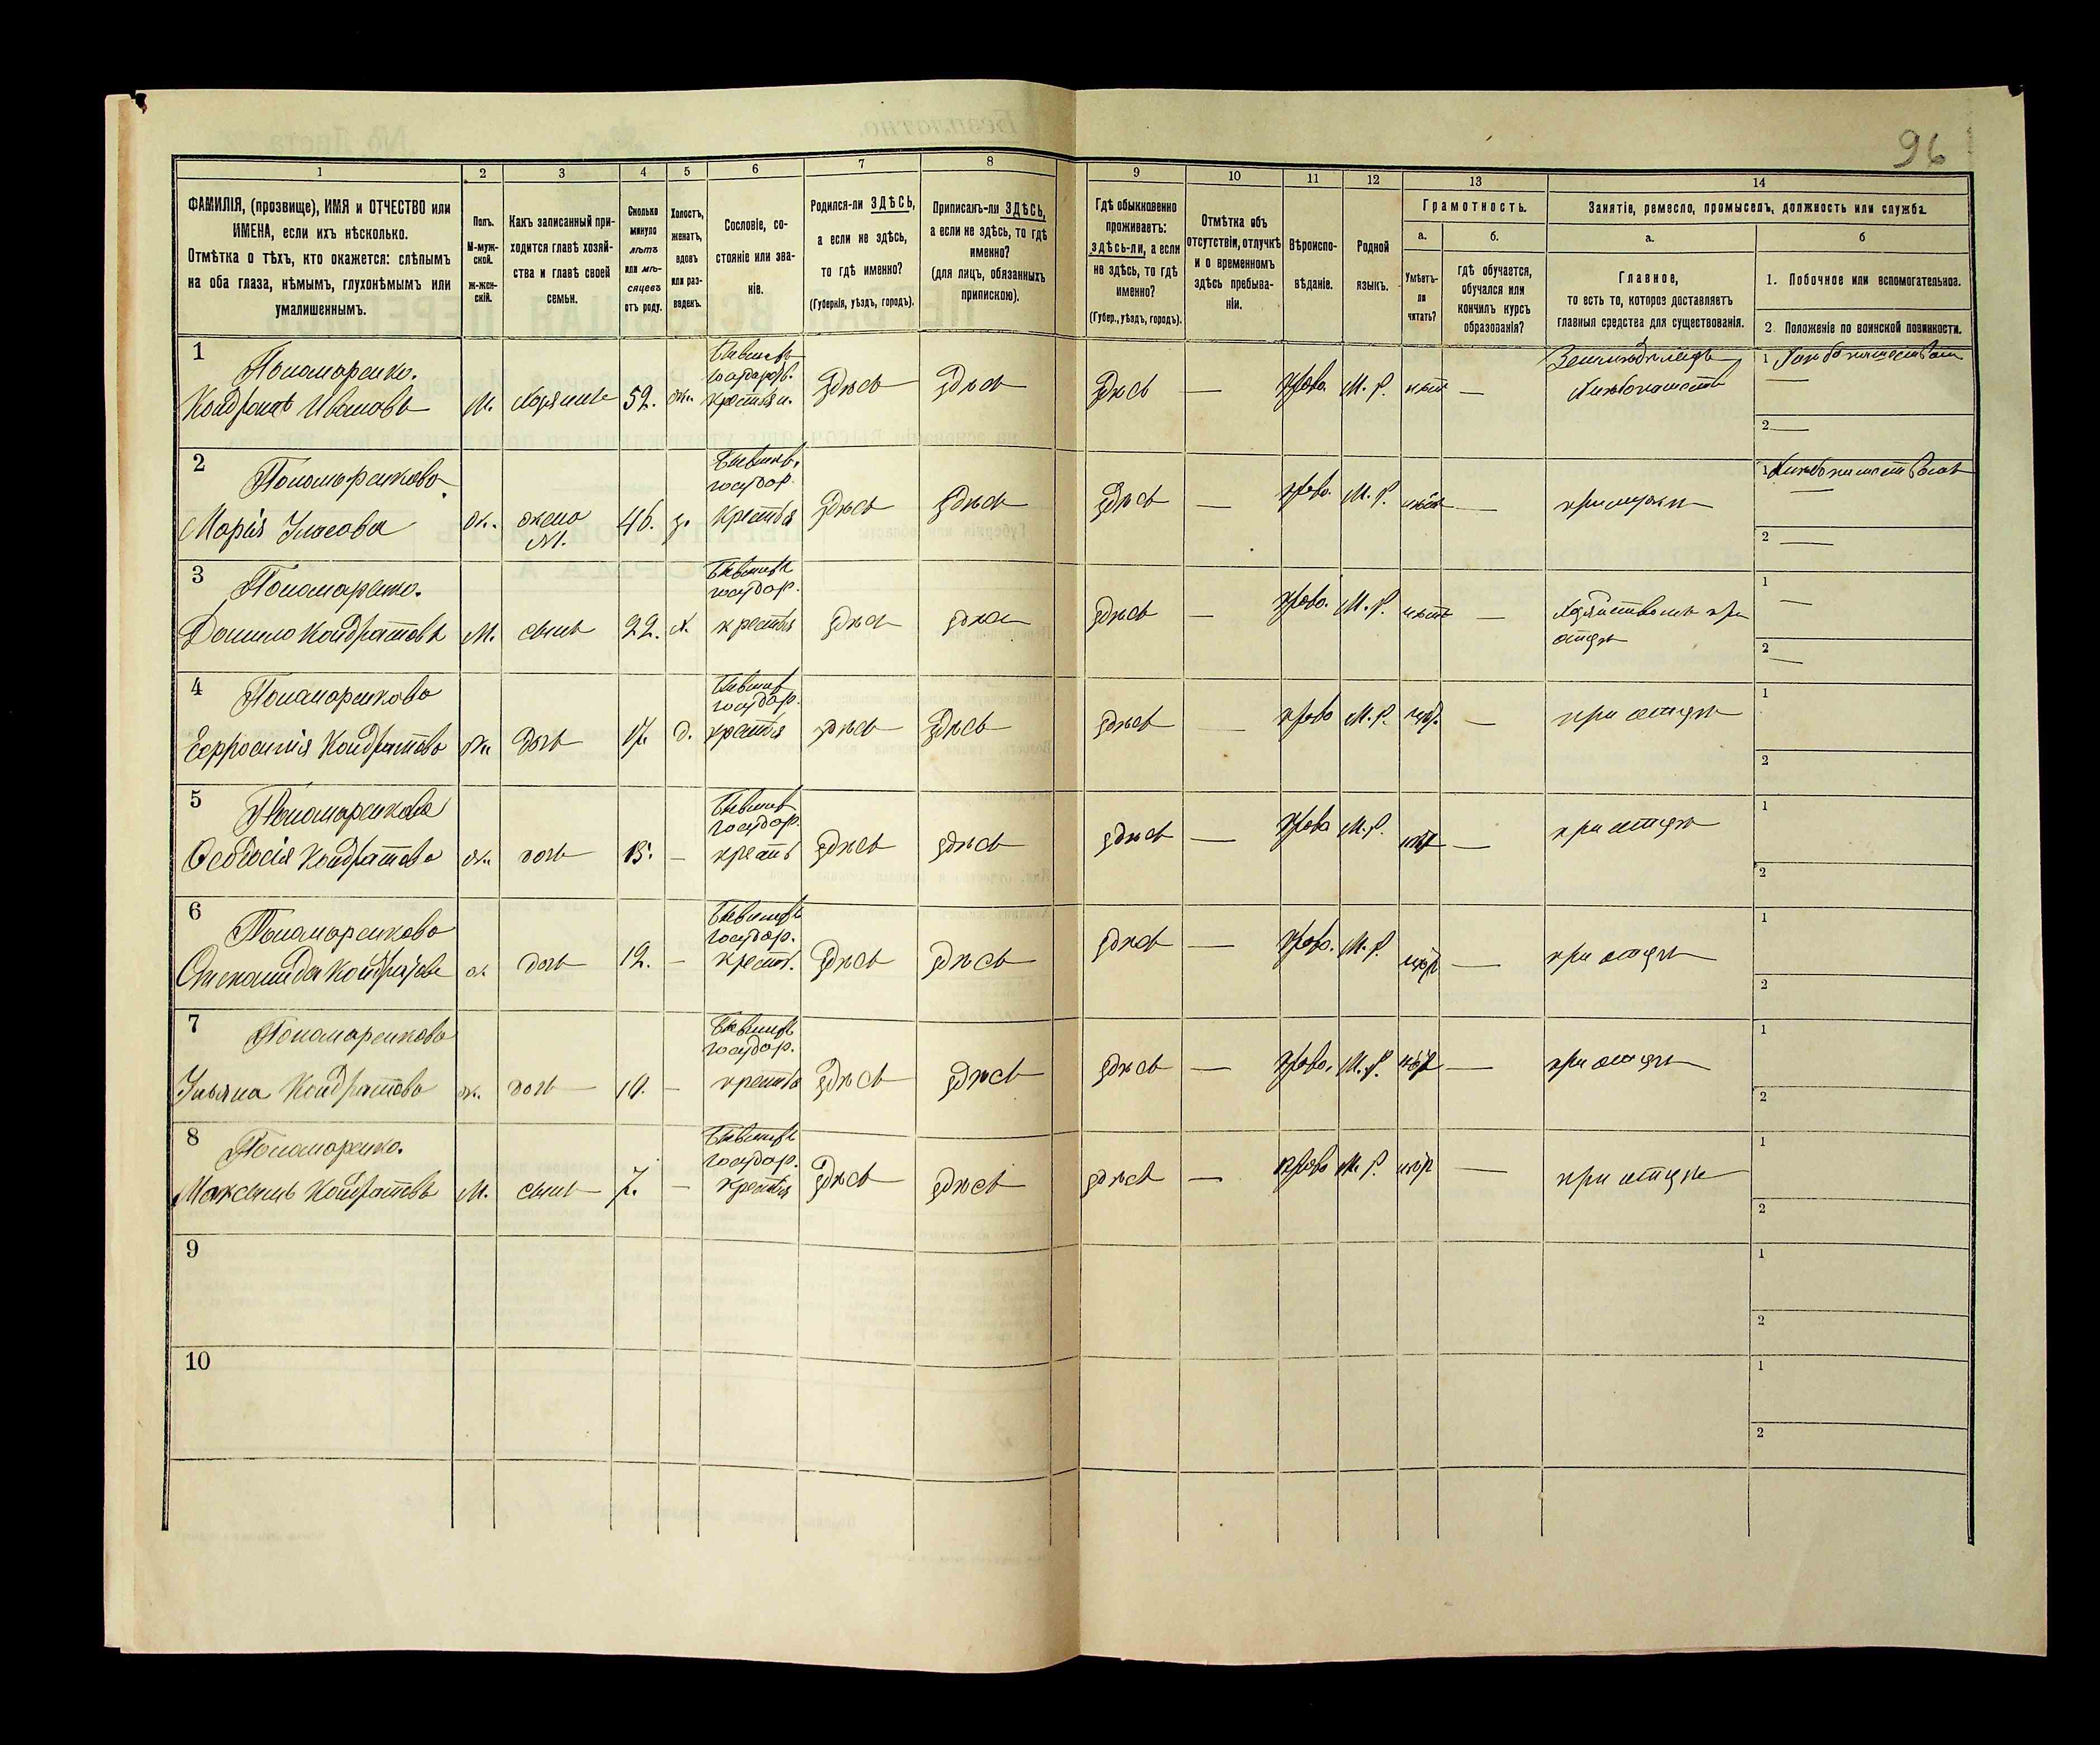 96
1 2 3 4 5 6 7 8 9 10 11 12 13 14
ФАМИЛІЯ, (прозвище), ИМЯ и ОТЧЕСТВО или
ИМЕНА, если ихъ нѣсколько.
Отмѣтка о тѣхъ, кто окажется: слѣпымъ
на оба глаза, нѣмымъ, глухонѣмымъ или
умалишеннымъ.
Полъ.
М-муж-
ской.
ж-жен-
скій.
Какъ записанный при-
ходится главѣ хозяй-
ства и главѣ своей
семьи.
Сколько
минуло
лѣтъ
или мѣ-
сяцевъ
отъ роду.
Холостъ,
женатъ,
вдовъ
или раз-
веденъ.
Сословіе, со-
стояніе или зва-
ніе.
Родился-ли ЗДѢСЬ,
а если не здѣсь,
то гдѣ именно?
(Губернія, уѣздъ, городъ).
Приписанъ-ли ЗДѢСЬ,
а если не здѣсь, то гдѣ
именно?
(для лицъ, обязанныхъ
припискою).
Гдѣ обыкновенно
проживаетъ:
здѣсь-ли, а если
не здѣсь, то гдѣ
именно?
(Губер., уѣздъ, городъ).
Отмѣтка объ
отсутствіи, отлучкѣ
и о временномъ
здѣсь пребыва-
ніи.
Вѣроиспо-
вѣданіе.
Родной
языкъ.
Грамотность.
а.
Умѣетъ-
ли
читать?
б.
гдѣ обучается,
обучался или
кончилъ курсъ
образованія?
Занятіе, ремесло, промыселъ, должность или служба.
а.
Главное,
то есть то, которое доставляетъ
главныя средства для существованія.
б
1. Побочное или вспомогательное.
2. Положеніе по воинской повинности.
1 Пономаренко.
Кондратъ Ивановъ М. хозяинъ 52. ж. Бывшъ государ. крестьян. здѣсь здѣсь здѣсь — право. М. Р. нѣтъ — Земледѣлецъ
1 —
2 —
2 Пономаренкова
Марія Уласова ж. жена М. 46. з. Бывшъ. государ. крестья здѣсь здѣсь здѣсь — право. М. Р. нѣтъ — при мужѣ
1 —
2 —
3 Пономаренко.
Данило Кондратовъ М. сынъ 22. х. Бывшъ государ. крестья здѣсь здѣсь здѣсь — право. М. Р. нѣтъ — хозяйствомъ при
отцѣ
1 —
2 —
4 Пономаренкова
Ефросинія Кондратова ж. дочь 17. д. Бывшъ государ. крестья здѣсь здѣсь здѣсь — право М. Р. — при отцѣ
1
2
5 Пономаренкова
Ѳеодосія Кондратова ж. дочь 15. — Бывшъ государ. кресть здѣсь здѣсь здѣсь — право М. Р. — при отцѣ
1
2
6 Пономаренкова
ж. дочь 12. — Бывшъ государ. крест. здѣсь здѣсь здѣсь — право. М. Р. — при отцѣ
1
2
7 Пономаренкова
Ульяна Кондратова ж. дочь 10. — Бывшъ государ. крестья здѣсь здѣсь здѣсь — право. М. Р. — при отцѣ
1
2
8 Пономаренко.
Максимъ Кондратовъ М. сынъ 7. — Бывшъ государ. крестья здѣсь здѣсь здѣсь — право М. Р. — при отцѣ
1
2
9
1
2
10
1
2